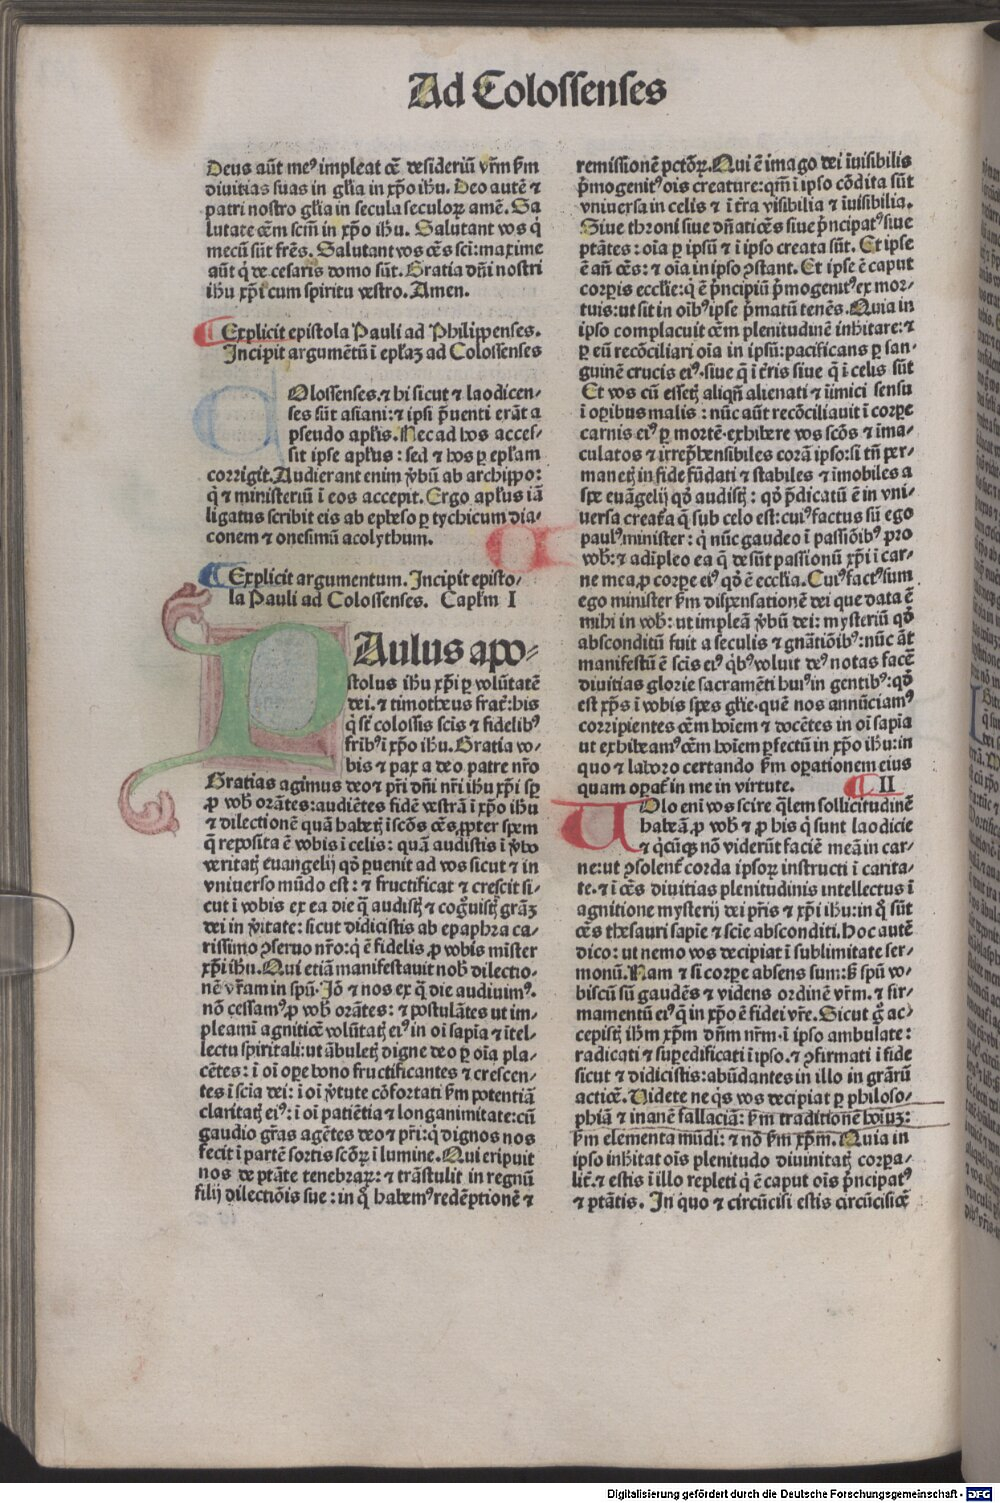 Ad Colossenses
Deus aūt meꝰ impleat oē̄ desideriū vr̄m s̄m
diuitias suas in gl̄ia in xp̄o ih̄u. Deo autē ⁊
patri nostro gl̄ia in secula seculoꝝ amē. Sa
lutate oēm scm̄ in xp̄o ih̄u. Salutant vos q̇
mecū sūt fr̄es. Salutant vos oēs sci: maxime
aūt q̇ de cesaris domo sūt. Gratia dn̄i nostri
ih̄u xp̄i cum spiritu vestro. Amen.
¶ Explicit epistola Pauli ad Philippenses.
Incipit argumētū ī epl̄aꝫ ad Colossenses
Olossenses. ⁊ hi sicut ⁊ laodicen⸗
ses sūt asiani: ⁊ ipsi p̄uenti erāt a
pseudo apl̄is. Nec ad hos acces⸗
sit ipse apl̄us: sed ⁊ hos ꝑ epl̄am
corrigit. Audierant enim v̄bū ab archippo:
q̇ ⁊ ministeriū ī eos accepit. Ergo apl̄us iā
ligatus scribit eis ab epheso ꝑ tychicum dia⸗
conem ⁊ onesimū acolythum.
¶ Explicit argumentum. Incipit episto⸗
la Pauli ad Colossenses. Caplm̄ I
PAulus apo⸗
stolus ih̄u xp̄i ꝑ volūtatē
dei. ⁊ timotheus frat̄: his
q̇ st̄ colossis scis ⁊ fidelibꝰ
fribꝰ ī xp̄o ih̄u. Gratia vo⸗
bis ⁊ pax a deo patre nr̄o
Gratias agimus deo ⁊ pr̄i dn̄i nr̄i ih̄u xp̄i sꝑ
ꝓ vob̄ orātes: audiētes fidē vestrā ī xp̄o ih̄u
⁊ dilectionē quā habetꝭ ī scōs oēs ꝓpter spem
q̄ reposita ē vobis ī celis: quā audistis ī v̄bo
veritatꝭ euangelij qd̄ ꝑuenit ad vos sicut ⁊ in
vniuerso mūdo est: ⁊ fructificat ⁊ crescit si⸗
cut ī vobis ex ea die q̄ audistꝭ ⁊ cog̊uistꝭ grāꝫ
dei in v̄itate: sicut didicistis ab epaphra ca⸗
rissimo ꝯseruo nr̄o: q̇ ē fidelis ꝓ vobis mīster
xp̄i ih̄u. Qui etiā manifestauit nob̄ dilectio⸗
nē vr̄am in spū. Iō ⁊ nos ex q̄ die audiuimꝰ.
nō cessamꝰ ꝓ vob̄ orātes: ⁊ postulātes ut im⸗
pleami agnitiōe volūtatꝭ eiꝰ in oī sapīa ⁊ ītel⸗
lectu spiritali: ut ābuletꝭ digne deo ꝑ oīa pla⸗
cētes: ī oī oꝑe bono fructificantes ⁊ crescen⸗
tes ī scīa dei: ī oī v̄tute cōfortati s̄m potentiā
claritatꝭ eiꝰ: ī oī patiētia ⁊ longanimitate: cū
gaudio gr̄as agētes deo ⁊ pr̄i: q̇ dignos nos
fecit ī partē sortis scōꝝ ī lumine. Qui eripuit
nos de ptāte tenebraꝝ: ⁊ trāstulit in regnū
filij dilectiōis sue: in q̊ habemꝰ redēptionē ⁊
remissionē pctōꝝ. Qui ē imago dei īuisibilis
p̄mogenitꝰ oīs creature: qm̄ ī ipso cōdita sūt
vniuersa in celis ⁊ ī t̄ra visibilia ⁊ īuisibilia.
Siue throni siue dn̄atiōes siue p̄ncipatꝰ siue
ptātes: oīa ꝑ ipsū ⁊ ī ipso creata sūt. Et ipse
ē añ oēs: ⁊ oīa in ipso ꝯstant. Et ipse ē caput
corpis eccl̄ie: q̇ ē p̄ncipiū p̄mogenitꝰ ex mor⸗
tuis: ut sit in oībꝰ ipse p̄matū tenēs. Quia in
ipso complacuit oēm plenitudinē inhitare: ⁊
ꝑ eū recōciliari oīa in ipsū: pacificans ꝑ san⸗
guinē crucis eiꝰ. siue q̄ ī t̄ris siue q̄ ī celis sūt
Et vos cū essetꝭ aliqñ alienati ⁊ īimici sensu
ī oꝑibus malis: nūc aūt recōciliauit ī corꝑe
carnis eiꝰ ꝑ mortē. exhibere vos scōs ⁊ īma⸗
culatos ⁊ irrep̄hensibiles corā ipso: si tn̄ per⸗
manetꝭ in fide fūdati ⁊ stabiles ⁊ īmobiles a
spe euāgelij qd̄ audistꝭ: qd̄ p̄dicatū ē in vni⸗
uersa creat̄a q̄ sub celo est: cuiꝰ factus sū ego
paulꝰ minister: q̇ nūc gaudeo ī passiōibꝰ pro
vob̄: ⁊ adipleo ea q̄ desūt passionū xp̄i ī car⸗
ne mea ꝓ corꝑe eiꝰ qd̄ ē eccl̄ia. Cuiꝰ factꝰ sum
ego minister s̄m dispensationē dei que data ē
mihi in vob̄: ut impleā v̄bū dei: mysteriū qd̄
absconditū fuit a seculis ⁊ gn̄atiōibꝰ: nūc āt
manifestū ē scis eiꝰ q̇bꝰ voluit deꝰ notas facē
diuitias glorie sacramēti huiꝰ in gentibꝰ: qd̄
est xp̄s ī vobis spes gl̄ie. quē nos annūciamꝰ
corripientes oēm hoīem ⁊ docētes in oī sapīa
ut exhibeamꝰ oēm hoīem ꝑfectū in xp̄o ih̄u: in
quo ⁊ laboro certando s̄m oꝑationem eius
quam oꝑat̄ in me in virtute. ¶ II
UOlo enī vos scire q̄lem sollicitudinē
habeā ꝓ vob̄ ⁊ ꝓ his q̇ sunt laodicie
⁊ q̇cūqꝫ nō viderūt faciē meā in car⸗
ne: ut ꝯsolent̄ corda ipsoꝝ instructi ī carita⸗
te. ⁊ ī oēs diuitias plenitudinis intellectus ī
agnitione mysterij dei pr̄is ⁊ xp̄i ih̄u: in q̊ sūt
oēs thesauri sapīe ⁊ scīe absconditi. Hoc autē
dico: ut nemo vos decipiat ī sublimitate ser⸗
monū. Nam ⁊ si corꝑe absens sum: sꝫ spū vo⸗
biscū sū gaudēs ⁊ videns ordinē vr̄m. ⁊ fir⸗
mamentū eiꝰ q̄ in xp̄o ē fidei vr̄e. Sicut g̊ ac⸗
cepistꝭ ih̄m xp̄m dn̄m nr̄m. ī ipso ambulate:
radicati ⁊ suꝑedificati ī ipso. ⁊ ꝯfirmati ī fide
sicut ⁊ didicistis: abūdantes in illo in grārū
actiōe. Videte ne q̇s vos decipiat ꝑ philoso⸗
phiā ⁊ inanē fallaciā: s̄m traditionē hoīuꝫ:
s̄m elementa mūdi: ⁊ nō s̄m xp̄m. Quia in
ipso inhitat oīs plenitudo diuinitatꝭ corꝑa⸗
lit̄. ⁊ estis ī illo repleti q̇ ē caput oīs p̄ncipatꝰ
⁊ ptātis. In quo ⁊ circūcisi estis circūcisiōe
Digitalisierung gefördert durch die Deutsche Forschungsgemeinschaft - DFG